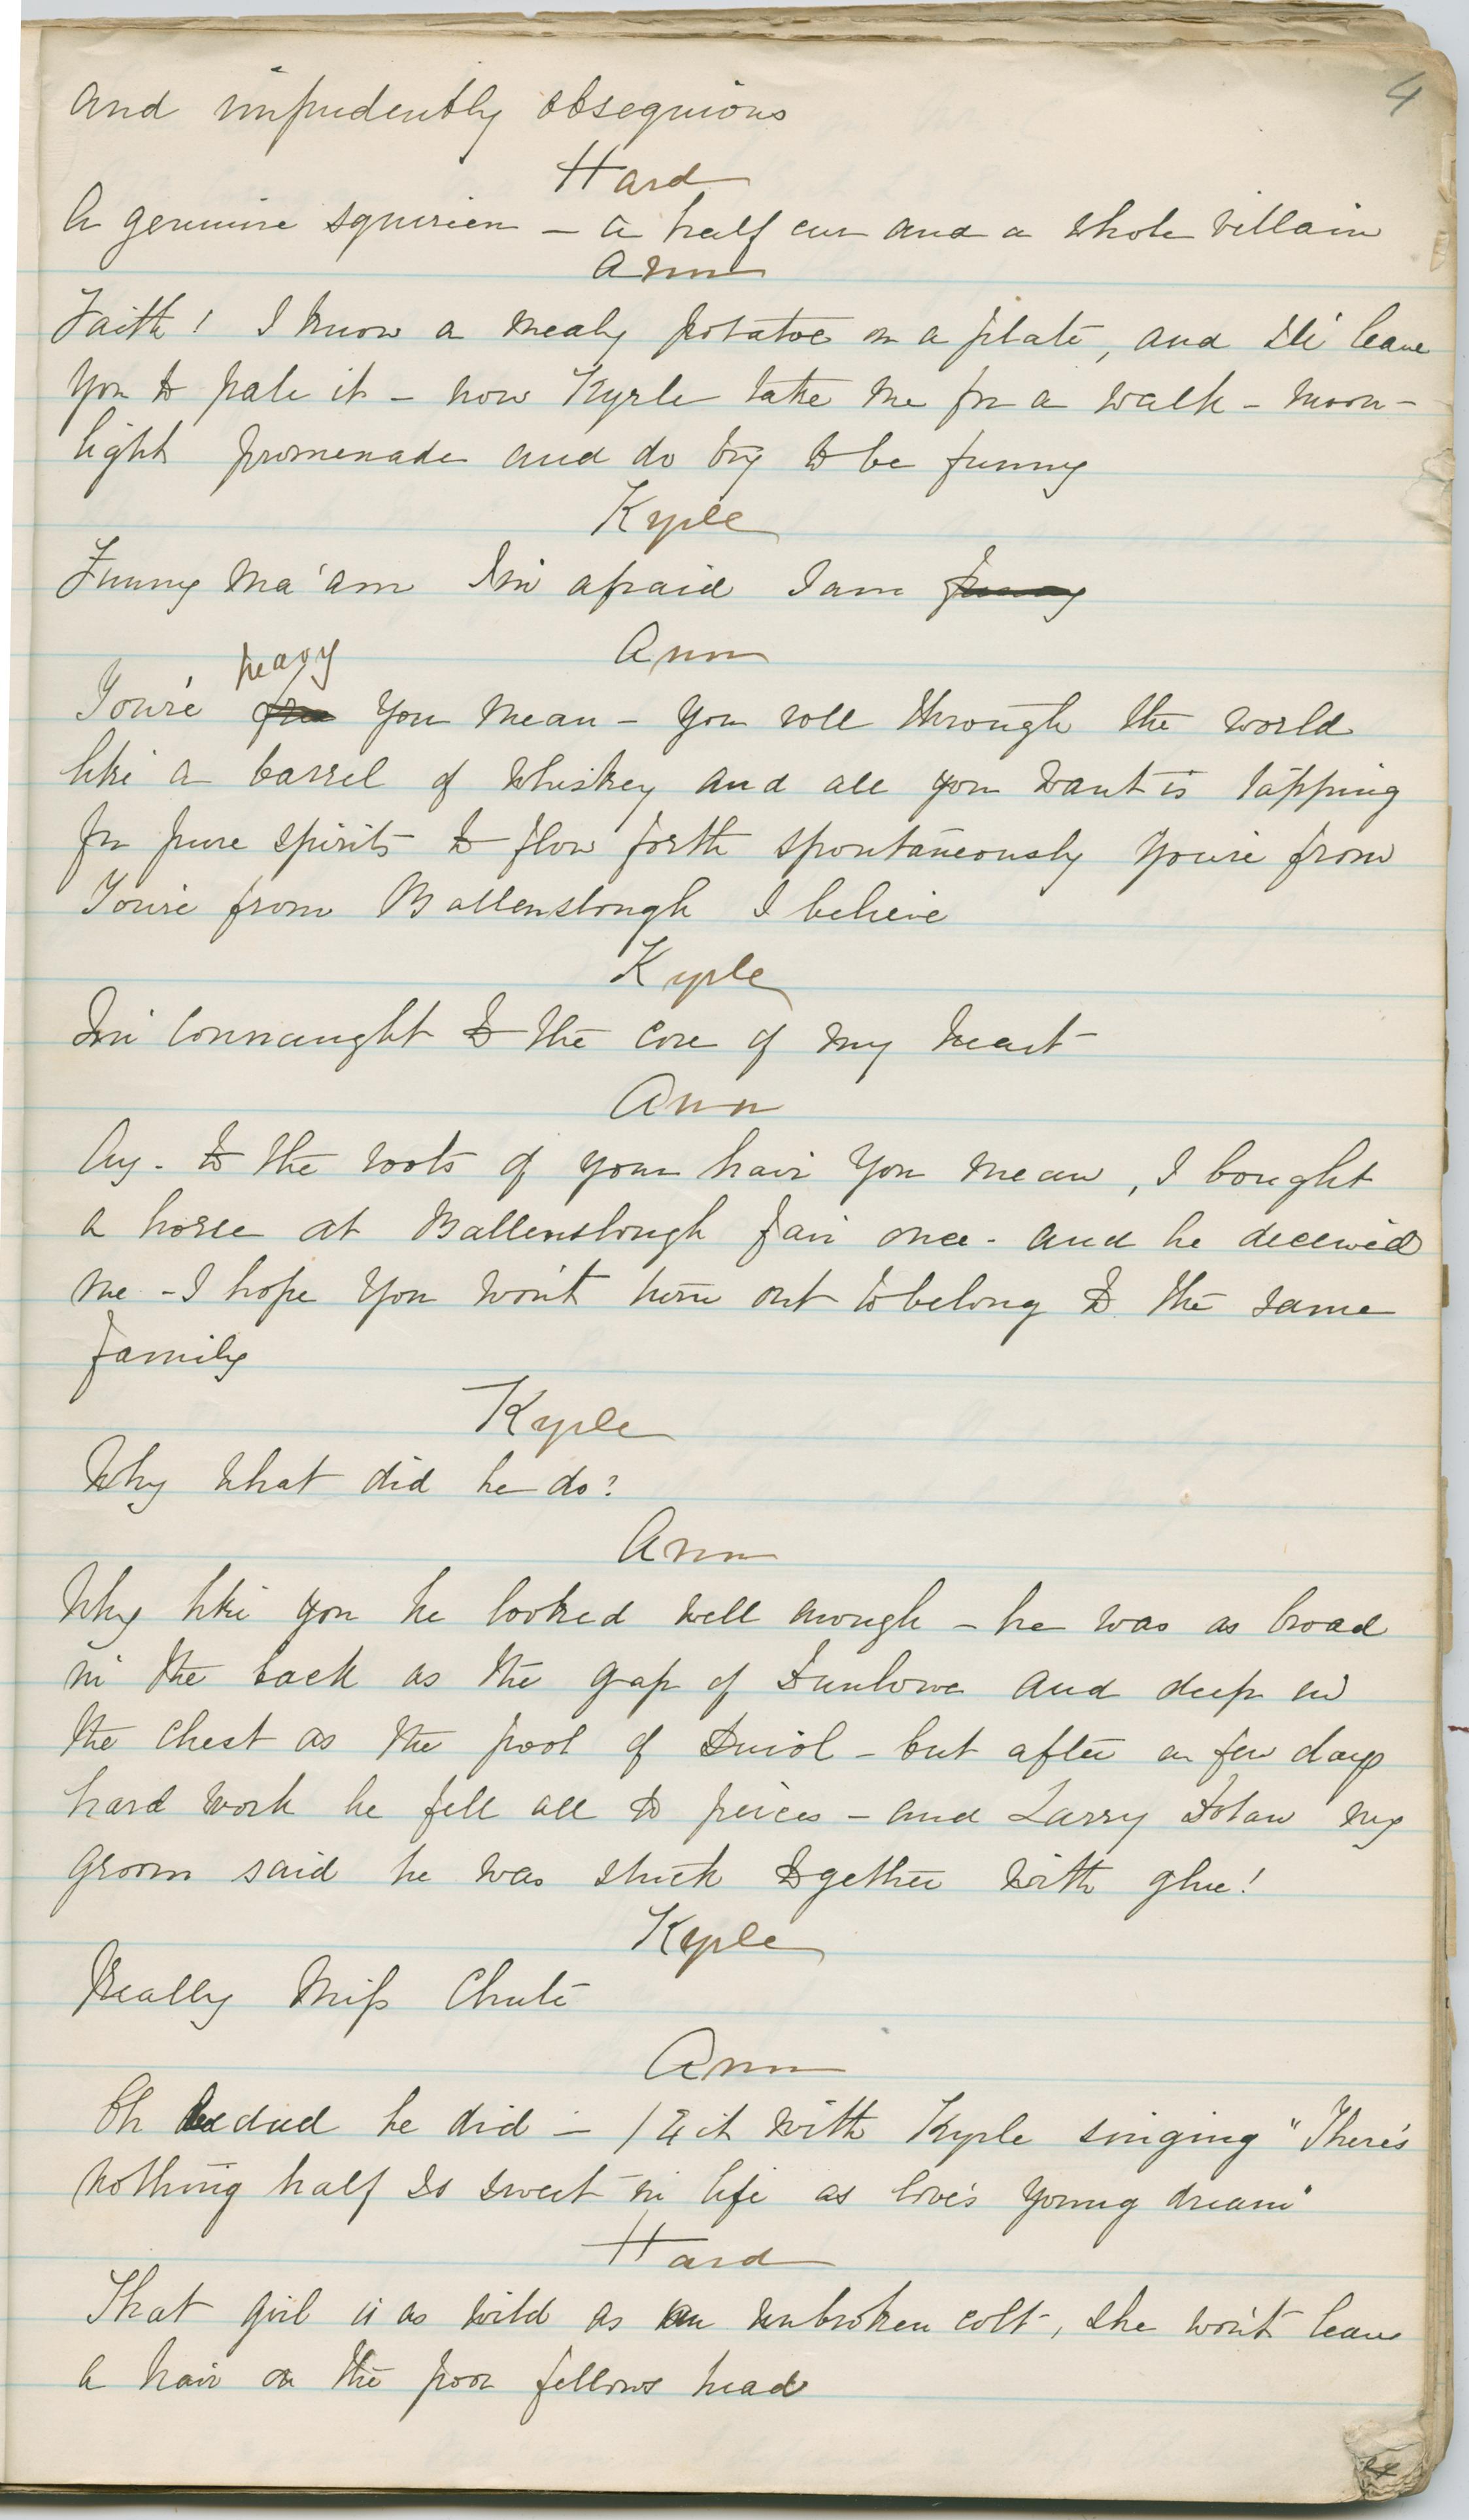 4
and impudently obsequious
Hard
A genuine squireen - a half cur and a whole villain
Ann
Faith! I know a mealy potatoe on a plate, and I'll leave
you to pale it - now Kyrle take me for a walk - moon-
light promenade and do try to be funny
Kyrle
Funny Ma'am I'm afraid I am funny
Ann
heavy
You're you mean - you roll through the world
like a barrel of whiskey and all you want is tapping
for pure spirits to flow forth spontaneously you're from
You're from Ballenslough I believe
Kyrle
I'm Connaught to the core of my heart
Ann
Ay - to the roots of your hair you mean, I bought
a horse at Ballenslough fair once - and he deceived
me - I hope you won't turn out to belong to the same
family
Kyrle
Why what did he do?
Ann
Why like you he looked well enough - he was as broad
in the back as the gap of Dunlowe and deep in
the chest as the pool of - but after a few days
hard work he fell all to peices - and Larry Dolan my
groom said he was stuck together with glue!
Kyrle
Really Miss Chute
Ann
Oh bedad he did - / Exit with Kyrle singing "There's
nothing half so sweet in life as love's young dream"
Hard
That girl is as wild as an unbroken colt, she won't leave
a hair on the poor fellows head